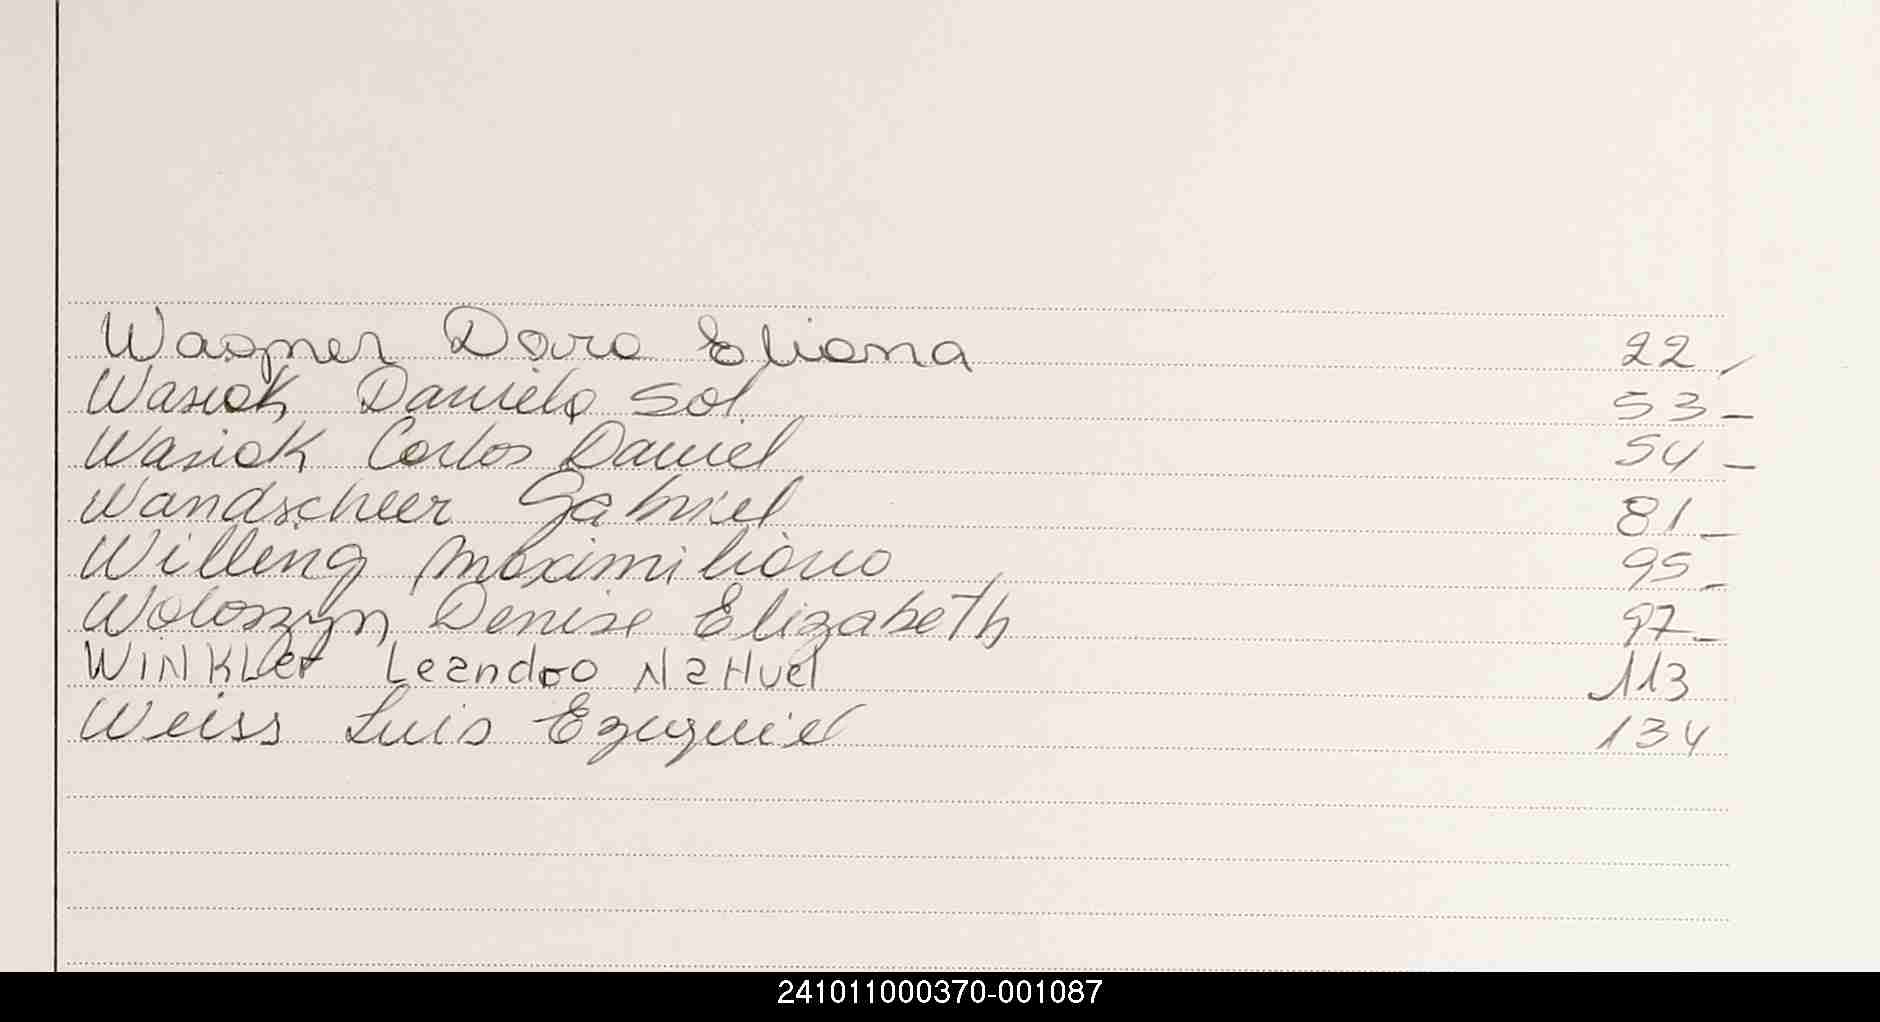 Wagner Dora Eliana 22 -
Wasiok Daniela Sol 53 -
Wasiok Carlos Daniel 54 -
Wandscheer Gabriel 81 -
Willing Maximiliano 95 -
Woloszyn Denise Elizabeth 97 -
WINKLer Leandro NaHuel 113
Weiss Luis Ezequiel 134
241011000370-001087